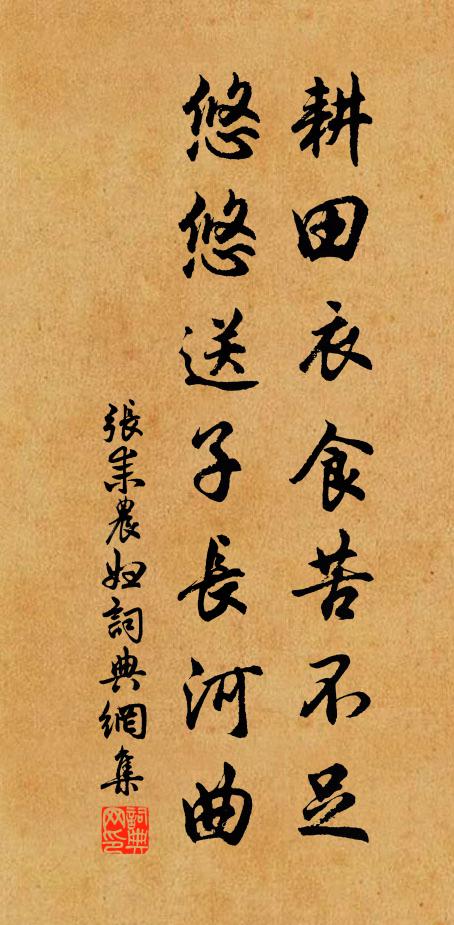 耕田衣食苦不足
悠悠送子長河曲
張耒農妇詞典網集
詞典
网印